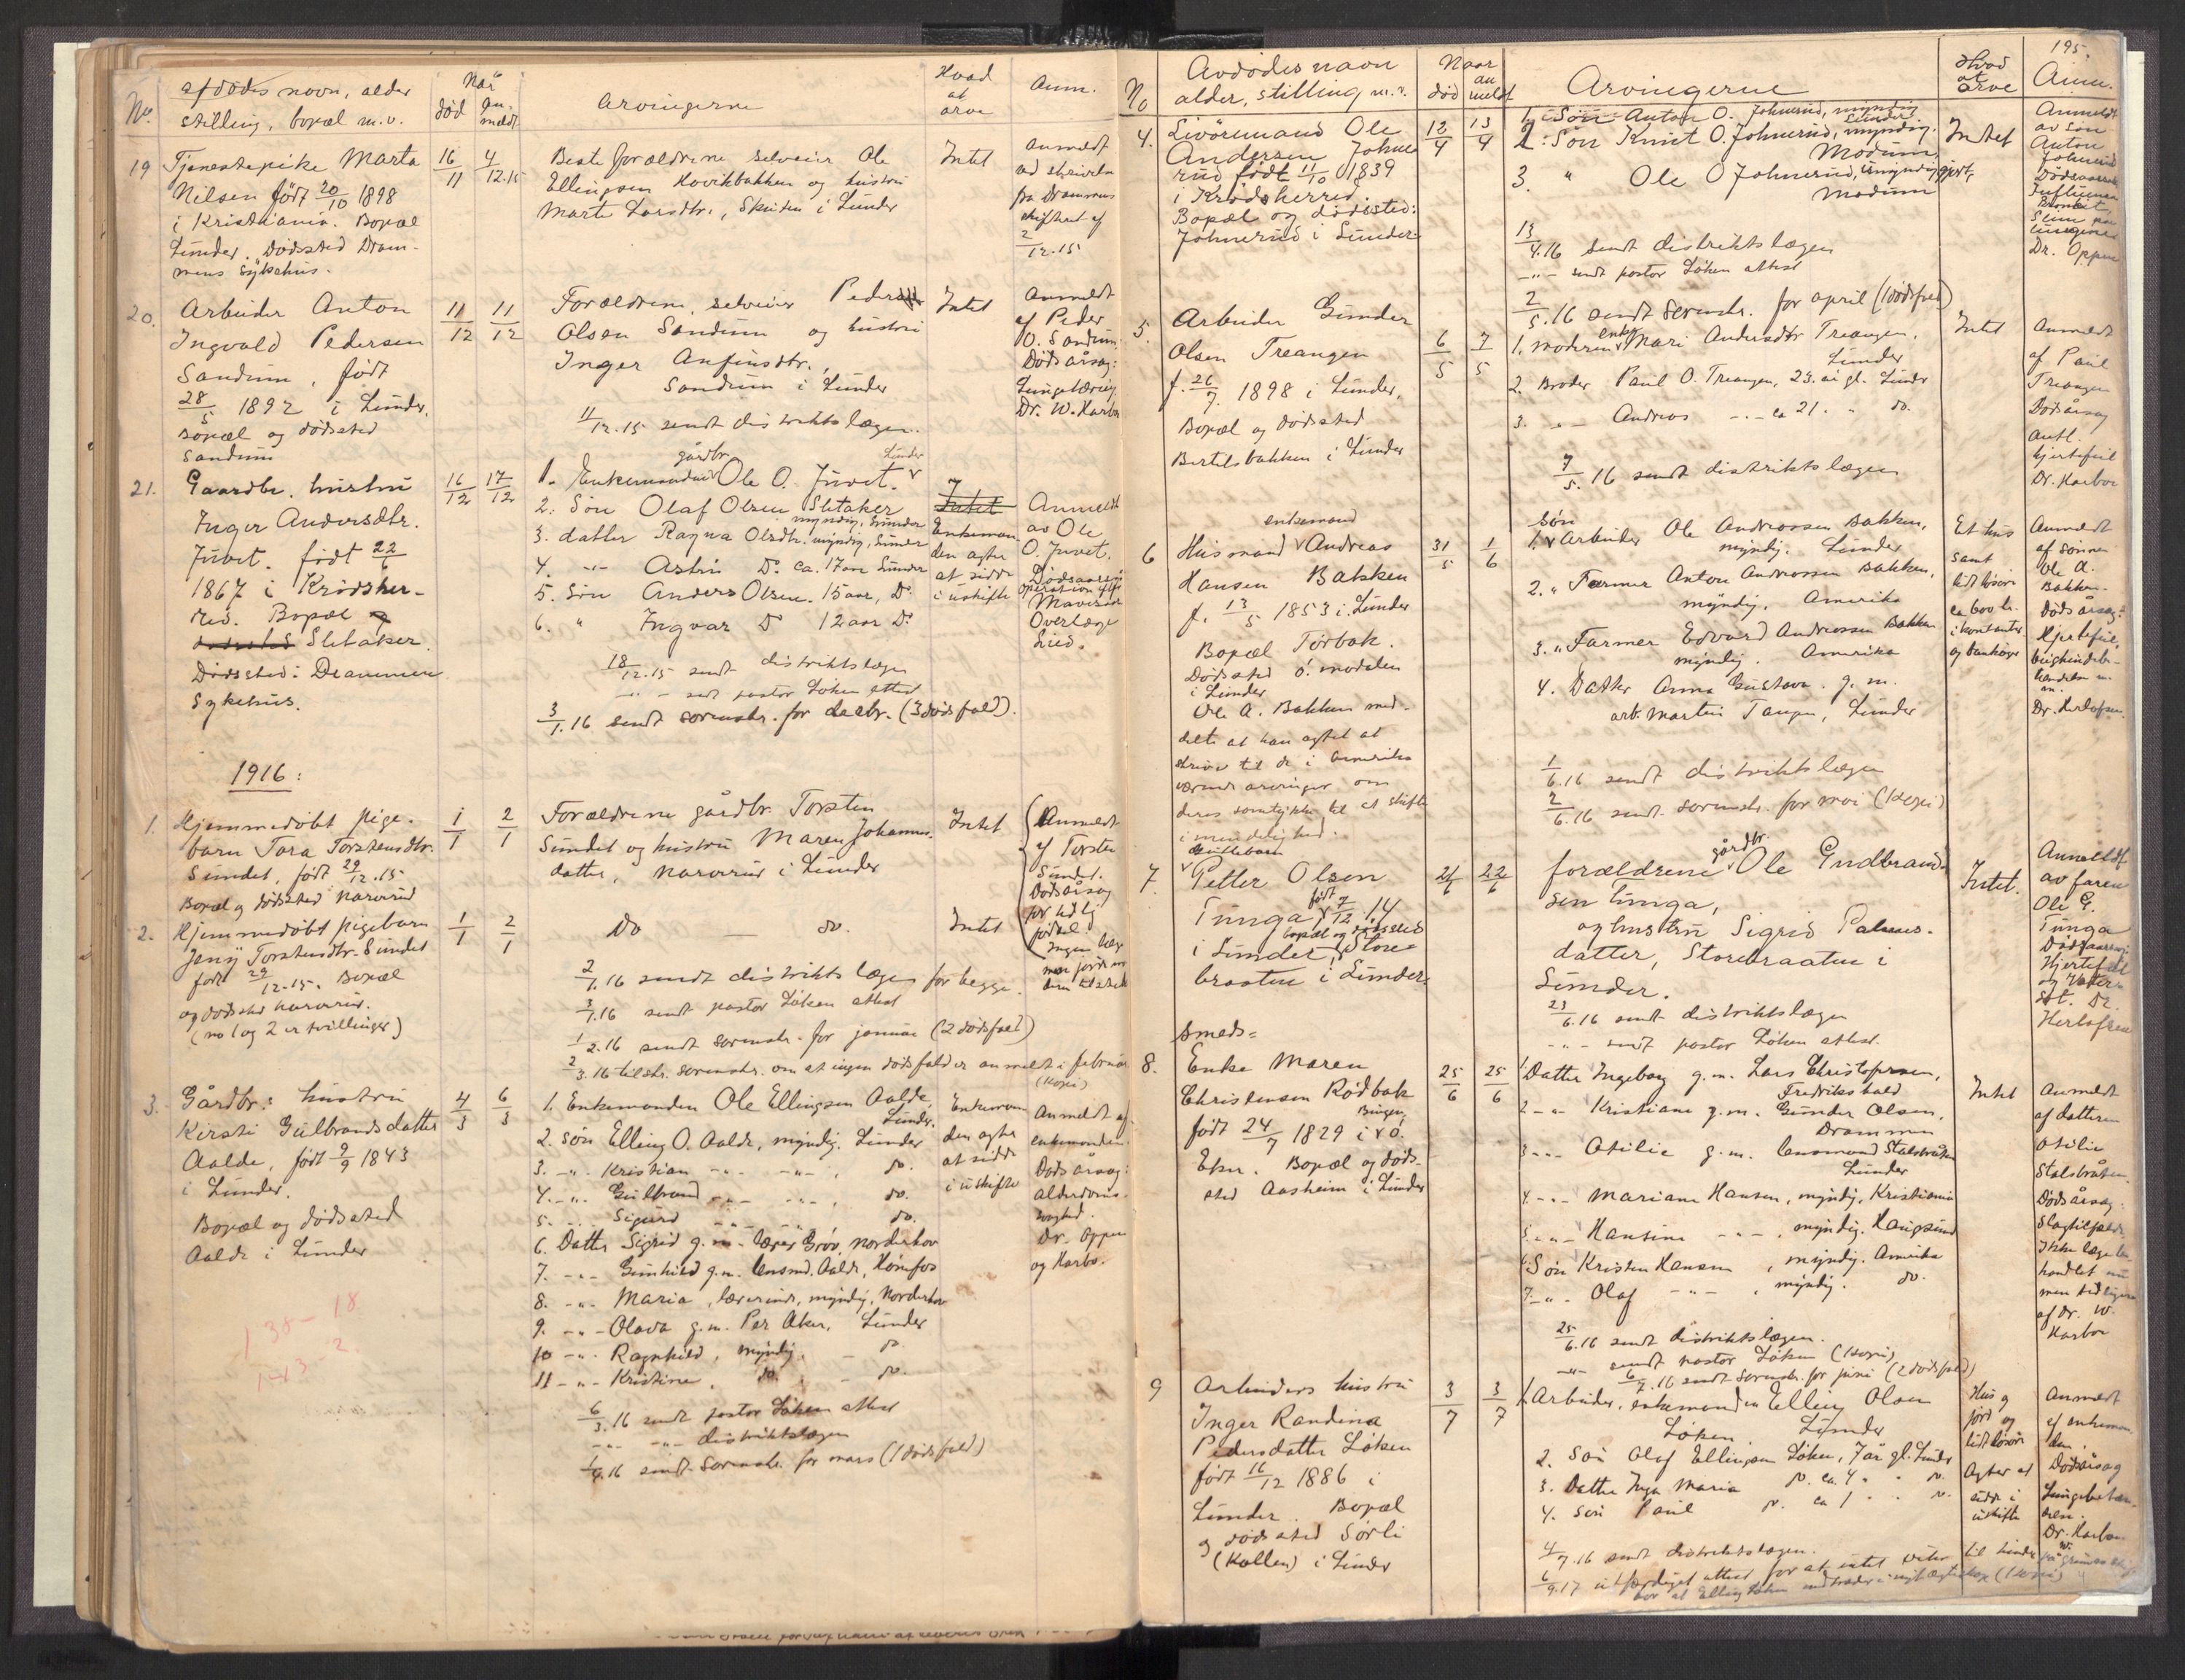 No.
afdødes navn, alder
stilling, bopæl m.v.
Når
død
an-
meldt
Arvingerne
Hvad
at
arve
Anm.
19
Tjenestepike Marta
Nilsen født 20/10 1898
i Kristiania. Bopæl
Lunder. Dødssted Dram-
mens sykehus.
16/11
4/12.15
Besteforældrene selveier Ole
Ellingsen Hovikbakken og hustru
Marte Larsdtr., Skuten i Lunder
Intet
Anmeldt
ved skrivelse
fra Drammens
skifteret af
2/12.15
20.
Arbeider Anton
Ingvald Pedersen
Sandum, født
28/5 1892 i Lunder.
Bopæl og dødssted
Sandum
11/12
11/12
Forældrene, selveier Peder
Olsen Sandum og hustru
Inger Anfinsdtr.,
Sandum i Lunder
11/12.15 sendt distriktslægen.
Intet
Anmeldt
af Peder
O. Sandum.
Dødsårsag:
Lungetæring
Dr. W. Harbo
21.
Gaardbr. hustru
Inger Andersdtr.
Juvet. født 22/6
1867 i Krødsher-
red. Bopæl
Sletaker.
Dødssted: Drammen
Sykehus.
16/12
17/12
1. Enkemanden gårdbr. Ole O. Juvet. Lunder
2. Søn Olaf Olsen Sletaker
myndig, Lunder
3. datter Ragna Olsdtr. myndig, Lunder
4. -"- Astri Do. ca. 17 aar Lunder
5. Søn Anders Olsen. 15 aar, Do.
6. " Ingvar Do 12 aar Do.
18/12.15 sendt distriktslægen
-"- sendt pastor Løken attest
3/1.16 sendt sorenskr. for decbr. (3 dødsfald).
Intet
Enkeman-
den agter
at sidde
i uskifte
Anmeldt
av Ole
O. Juvet.
Dødsaarsag
operation efter
Mavesaar
Overlæge
1916:
1.
Hjemmedøbt pige-
barn Tora Torstensdtr.
Sundet, født 29/12.15
Bopæl og dødssted Narverud
1/1
2/1
Forældrene gårdbr. Torsten
Sundet og hustru Maren Johannes-
datter, Narverud i Lunder
Intet
Anmeldt
af Torsten
Sundet.
Dødsårsag
for tidlig
fødsel.
Ingen læge
2.
Hjemmedøbt pigebarn
Jeny Torstensdtr. Sundet
født 29/12.15. Bopæl
og dødssted Narverud.
(no 1 og 2 er tvillinger)
1/1
2/1
Do — do.
Intet
2/1.16 sendt distriktslægen for begge.
3/1.16 sendt pastor Løken attest
1/2.16 sendt sorenskr. for januar (2 dødsfald)
2/3.16 tilskr. sorenskr. om at ingen dødsfald er anmeldt i februar
(Kopi)
3.
Gårdbr: hustru
Kirsti Gulbrandsdatter
Aalde, født 9/9 1843
i Lunder.
Bopæl og dødssted
Aalde i Lunder
4/3
6/3
1. Enkemanden Ole Ellingsen Aalde,
Lunder.
2. Søn Elling O. Aalde, myndig. Lunder
3. -"- Kristian -"- -"-, do.
4. -"- Gulbrand -"- -"-, do.
5. -"- Sigurd -"- -"-, do.
6. Datter Sigrid g.m. lærer Grøv, Norderhov
7. -"- Gunhild g.m. lensmd. Aalde, Hønefos
8. -"- Maria, lærerinde, myndig, Norderhov
9. -"- Olava g.m. Per Aker, Lunder
10 -"- Ragnhild, myndig, - do.
11 -"- Kristine, do. - do.
6/3.16 sendt pastor Løken attest
-"- -"- distriktslægen
1/4.16 sendt sorenskr. for mars (1 dødsfald)
Enkeman-
den agter
at sidde
i uskifte
Anmeldt af
enkemanden.
Dødsårsag:
alderdoms-
svaghed.
Dr. Oppen
og Harbo.
138-18
143-2
195.
No
Avdødes navn
alder, stilling m.v.
Naar
død
an
meldt
Arvingerne
Hvad
at
arve
Anm.
4.
Livøremand Ole
Andersen Johne-
rud født 11/10 1839
i Krødsherred.
Bopæl og dødssted:
Johnerud i Lunder.
12/4
13/4
1. Søn Anton O. Johnerud, myndig
Lunder
2. Søn Knut O. Johnerud, myndig.
Modum
3. " Ole O Johnerud, umyndiggjort,
Modum
13/4.16 sendt distriktslægen
-"- sendt pastor Løken attest
2/5.16 sendt sorenskr. for april (1 dødsfald)
Intet
Anmeldt
av søn
Anton
Johnerud
Dødsaarsak
Dr. Oppen
5.
Arbeider Gunder
Olsen Treangen
f. 26/7 1898 i Lunder,
Bopæl og dødssted
Bertelsbakken i Lunder
6/5
7/5
1. Moderen enke Mari Andersdtr Treangen,
Lunder
2. Broder Paul O. Treangen, 23. år gl. Lunder
3. -"- Andreas -"- ca 21. " do.
7/5.16 sendt distriktslægen
Intet
Anmeldt
af Paul
Treangen
Dødsårsag
antl.
hjertefeil
Dr. Harbo
6
Husmand enkemand Andreas
Hansen Bakken
f. 13/5 1853 i Lunder
Bopæl Tørbak.
Dødssted ø. modalen
i Lunder
Ole A. Bakken med-
delte at han agtet at
skrive til de i Amerika
værende arvinger om
deres samtykke til at skifte
i mindelighed.
31/5
1/6
Søn
1. Arbeider Ole Andreassen Bakken,
myndig. Lunder
2. " Farmer Anton Andreassen Bakken,
myndig. Amerika
3. " Farmer Edvard Andreassen Bakken
myndig. Amerika
4. Datter Anna Gustava. g.m.
arb. Martin Tangen, Lunder
1/6.16 sendt distriktslægen
2/6.16 sendt sorenskr. for mai (Kopi)
Et hus
samt
lidt løsøre
ca 600 kr.
i kontanter
og bankbog
Anmeldt
af sønnen
Ole A.
Bakken.
Dødsårsag:
Hjertefeil,
Dr. Herlofsen.
7.
Guttebarn
Petter Olsen
Tunga, født 7/12.14
i Lunder, bopæl og dødssted Store-
braaten i Lunder.
21/6
22/6
forældrene gårdbr. Ole Gudbrand-
sen Tunga,
og hustru Sigrid Palmes-
datter, Storebraaten i
Lunder.
23/6.16 sendt distriktslægen
-"- sendt pastor Løken attest.
Intet.
Anmeldt
av faren
Ole G.
Tunga
Dødsaarsag
Hjertefeil
og Vater-
sot. Dr.
Herlofsen
8.
Smeds-
Enke Maren
Christensen Rødbak
født 24/7 1829 i Bingen, Ø.
Eker. Bopæl og døds-
sted Aasheim i Lunder
25/6
25/6
1 Datter Ingeborg g.m. Lars Christofersen,
Fredrikshald
2 -"- Kristiane g.m. Gunder Olsen,
Drammen
3 -"- Otilie g.m. lensmand Stalsbråten
Lunder
4. -"- Mariane Hansen, myndig, Kristiania
5. -"- Hansine -"-, myndig. Haugsund
6. Søn Kristen Hansen, myndig. Amerika
7. -"- Olaf -"-, myndig. do.
25/6.16 sendt distriktslægen.
-"- sendt pastor Løken (Kopi)
6/7.16 sendt sorenskr. for juni (2 dødsfald)
Intet
Anmeldt
af datteren
Otilie
Stalsbråten.
Dødsårsag:
Slagtilfælde.
Ikke lægebe-
handlet nu
men tidligere
af Dr. W.
Harbo
9
Arbeiders hustru
Inger Randina
Pedersdatter Løken
født 16/12 1886 i
Lunder. Bopæl
og dødssted Sørli
(Kollen) i Lunder
3/7
3/7
1. Arbeider, enkemanden Elling Olsen
Løken, Lunder
2. Søn Olaf Ellingsen Løken, 7 år gl. Lunder
3. Datter Inga Maria do. ca. 4 " " do.
4. Søn Paul do. ca 1 " " do.
4/7.16 sendt distriktslægen.
6/9.17 utfærdiget attest for at intet veites til hinder
for at Elling Løken indtræder i nyt ægteskap (Kopi)
Hus og
jord og
lidt løsøre
Agter at
sidde i
uskifte
Anmeldt
af enkeman-
den.
Dødsårsag
Lungebetæn-
delse.
Dr. Harbo